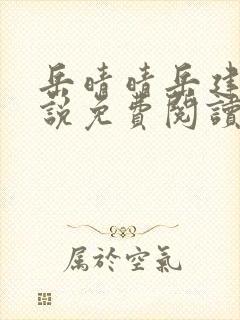 岳晴晴岳建
說免費閱讀
属於空氣